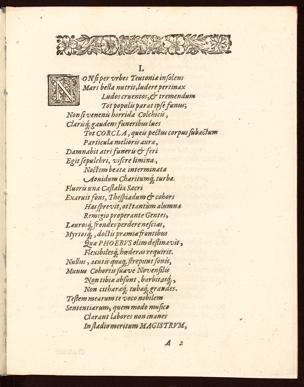 I.
NON si per vrbes Teutoniæ insolens
Mars bella nutrit, ludere pertinax
Ludos cruentos, & tremendum
Tot populis parat ipse funus;
Non si venenis horrida Colchicis,
Clarisq́; gaudens funeribus lues
Tot CORCLA, queis pectus corpus subactum
Particula melioris auræ,
Damnabit atri funeris & feri
Egit sepulchri, visere limina,
Noctem beata interminata
Aonidum Charitumq́; turba.
Fluoris una Castalia Sacri
Exaruit fons, Thespiadum & cohors
Has sprevit, at tantum alumna
Remigio properante Gentes,
Laurosq́; frondes perdere nescias,
Myrtosq́;, doctis præmia frontibus
Qua PHOEBVS olim destinavit,
Flexilesq́; hæderas requirit.
Nullus, acutis quaq́; strepunt sonis,
Munus Cohortis suave Novensilis
Non tibia absunt, barbitusq́;,
Non citharaq́; tubaq́; grandes.
Testem mearum te voco nobilem
Sententiarum, quem modo musico
Clarant labores non inanes
In stadio meritum MAGISTRVM,
A 2